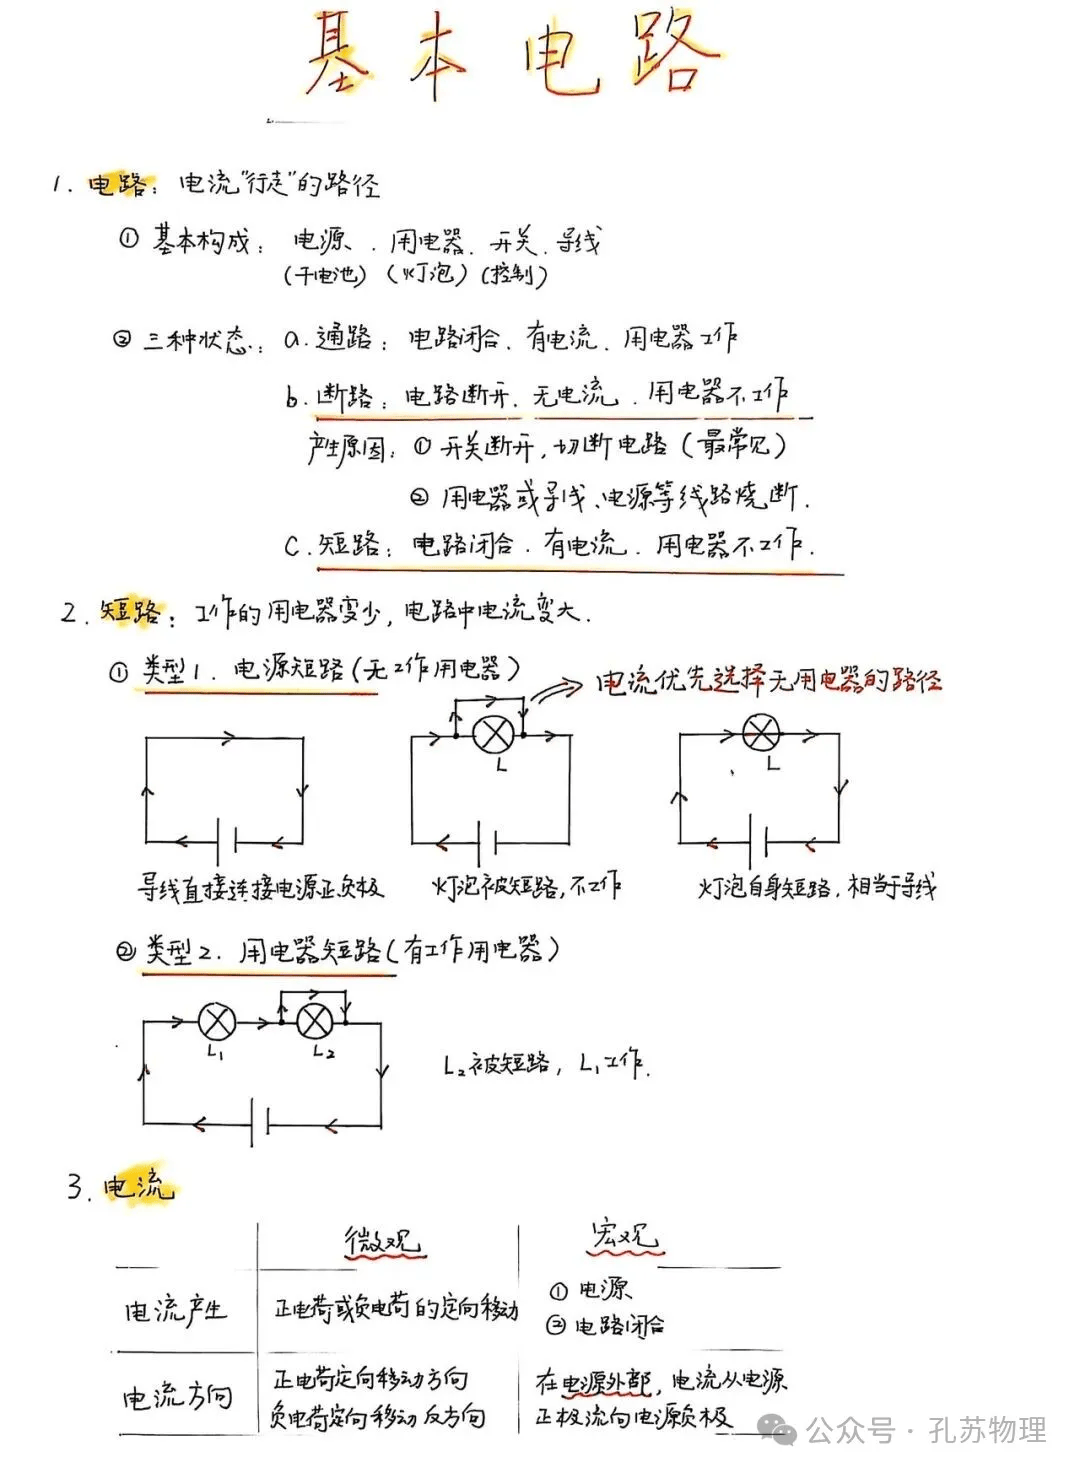 基本电路
1. 电路：电流“行走”的路径
① 基本构成：电源、用电器、开关、导线
(干电池) (灯泡) (控制)
② 三种状态：a.通路：电路闭合、有电流、用电器工作
b.断路：电路断开、无电流、用电器不工作
产生原因：① 开关断开，切断电路（最常见）
② 用电器或导线、电源等线路烧断.
c.短路：电路闭合、有电流、用电器不工作.
2. 短路：工作的用电器变少，电路中电流变大.
① 类型1. 电源短路（无工作用电器）
电流优先选择无用电器的路径
L
L
导线直接连接电源正负极
灯泡被短路，不工作
灯泡自身短路，相当于导线
② 类型2. 用电器短路（有工作用电器）
L₁
L₂
L₂被短路，L₁工作.
3. 电流
微观
宏观
电流产生
正电荷或负电荷的定向移动
① 电源
② 电路闭合
电流方向
正电荷定向移动方向
负电荷定向移动反方向
在电源外部，电流从电源
正极流向电源负极
公众号·孔苏物理